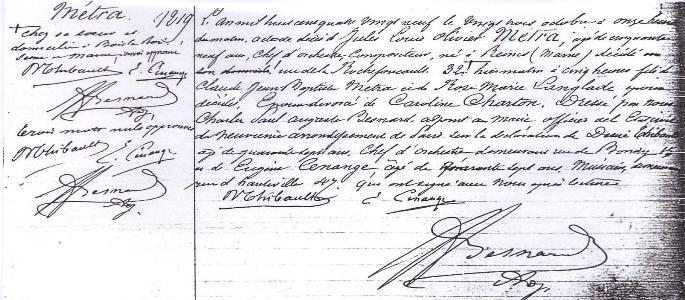 Métra. 1219
L'an mil huit cent quatre vingt neuf le vingt trois octobre à onze heures
du matin, acte de décès de Jules Louis Olivier Métra, âgé de cinquante
neuf ans, Chef d'orchestre Compositeur, né à Reims (Marne) décédé en
son domicile, rue de la Rochefoucault. 32 + hier matin à cinq heures, fils de
Claude Jean Baptiste Métra et de Rose Marie Langlade époux
décédés, Époux divorcé de Caroline Charton. Dressé par nous
Charles Paul Auguste Besnard, adjoint au maire officier de
du neuvième arrondissement de Paris sur la déclaration de Denis Thibault
âgé de quarante sept ans, Chef d'orchestre demeurant rue de Bondy
et de Eugène Cenange, âgé de quarante sept ans, Musicien, demeurant
rue d'hauteville 47 qui ont signé avec Nous après lecture
DThibault E. Cenange
Besnard
Adj.
+ chez sa soeur et
domicilié à Bois le Roi,
approuvé
DThibault E. Cenange
Besnard
trois mots nuls approuvés
DThibault E. Cenange
Besnard
Adj.